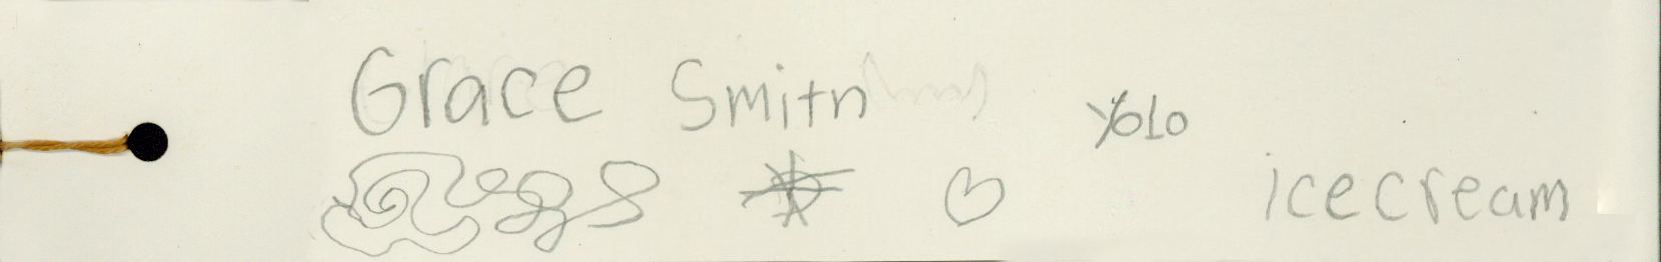 Grace Smith
Yolo
icecream